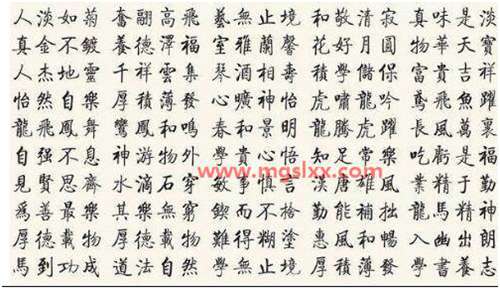 人淡如菊 奮翮高飛 藝無止境 和敬清寂 真味是淡
真金不鍍 養德澤福 室雅蘭馨 花好月圓 物華天寶
人杰地靈 千祥雲集 琴酒相壽 積學儲保 富貴吉祥
怡然自樂 厚積薄發 心曠神怡 虎嘯龍吟 鳶飛魚躍
龍飛鳳舞 鸞鳳和鳴 春和景明 龍騰虎躍 長風萬裏
自强不息 神游物外 學貴心悟 知足常樂 吃虧是福
www.mgslxx.com
見賢思齊 水滴石穿 敏事慎言 漢唐雄風 業精于勤
爲善最樂 其樂無窮 鍥而不捨 勤能補拙 龍馬精神
厚德載物 難得糊塗 惠風和暢
馬到功成 道法自然 學無止境 厚積薄發 學書養志